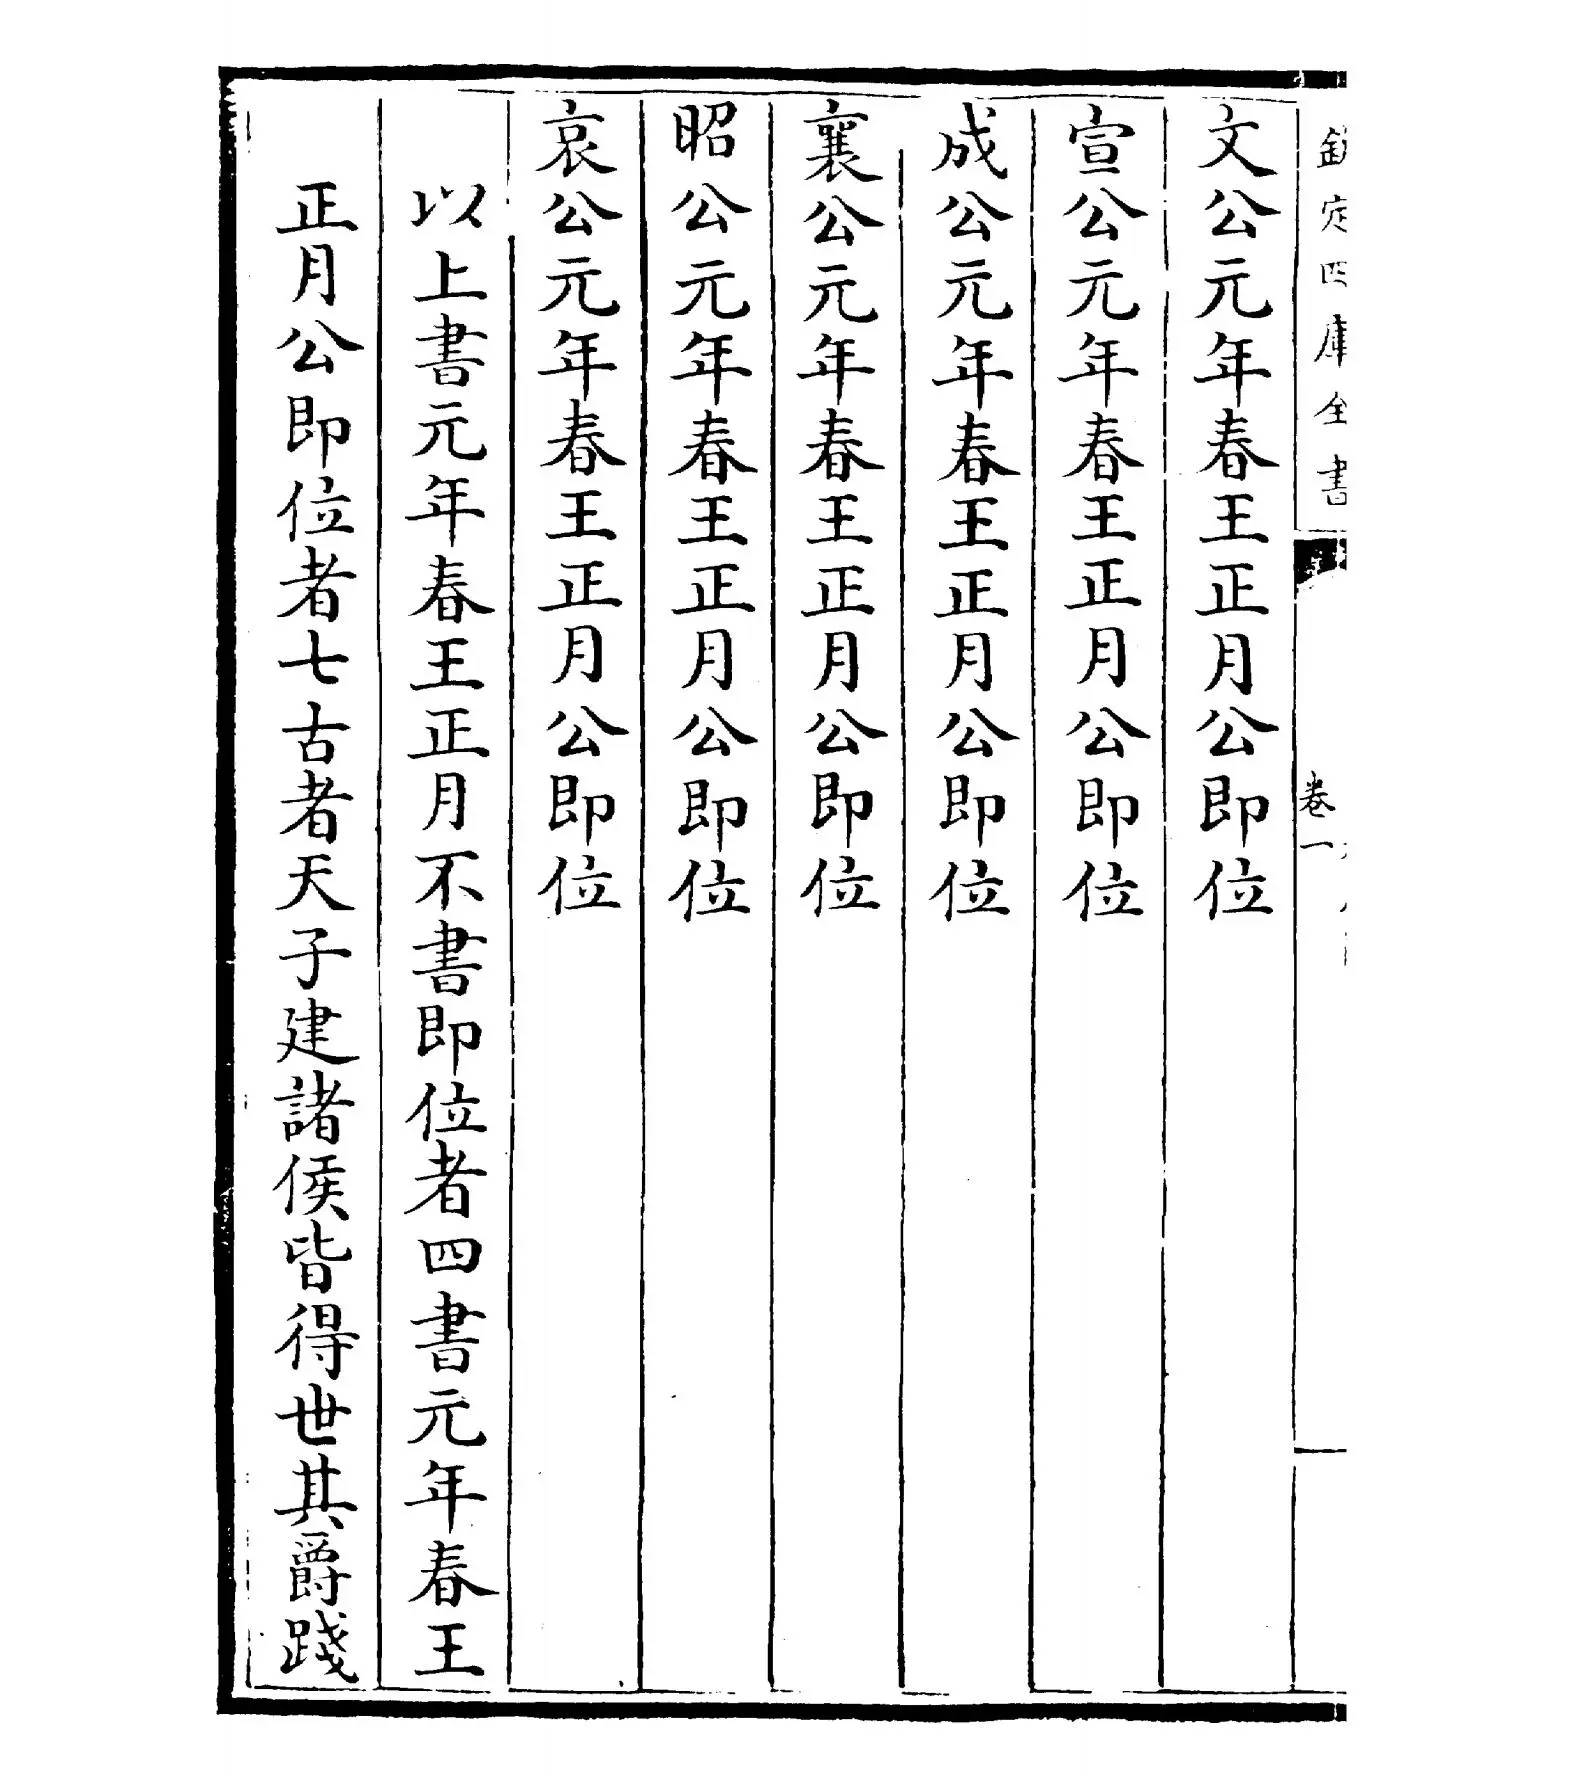 欽定四庫全書
卷一
文公元年春王正月公即位
宣公元年春王正月公即位
成公元年春王正月公即位
襄公元年春王正月公即位
昭公元年春王正月公即位
哀公元年春王正月公即位
以上書元年春王正月不書即位者四書元年春王
正月公即位者七古者天子建諸侯皆得世其爵踐